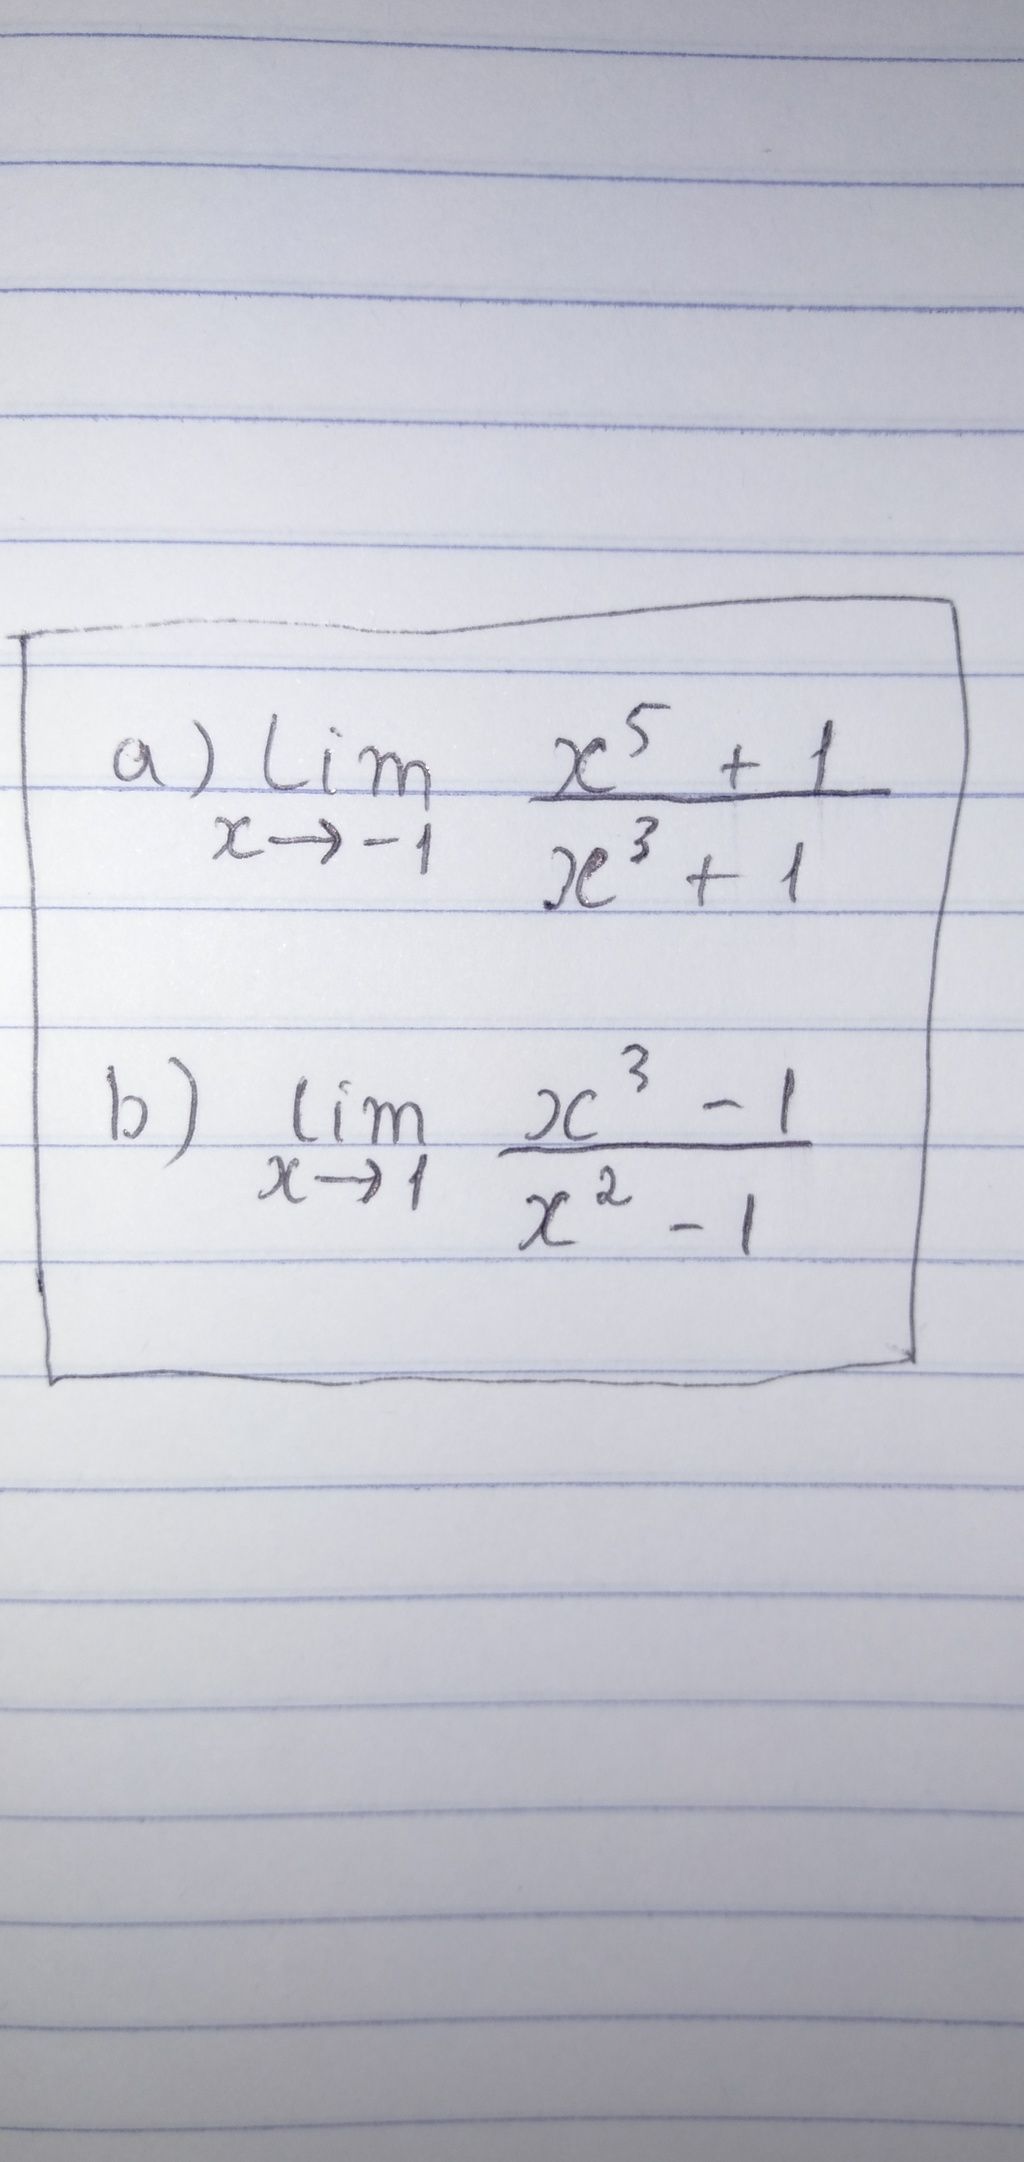 a) lim x⁵ + 1
x→-1 x³ + 1
b) lim x³ - 1
x→1 x² - 1